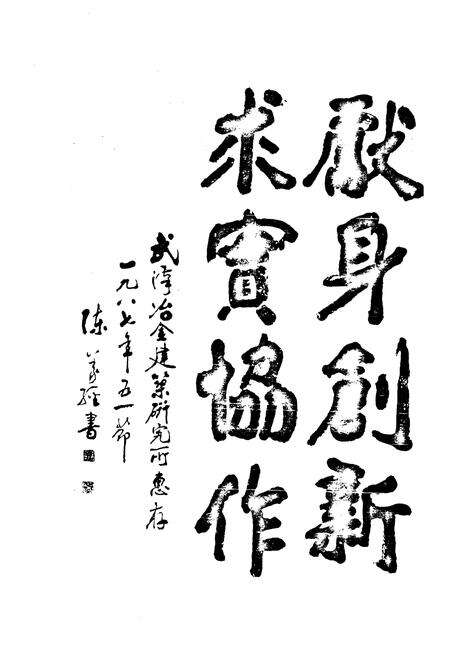 獻身創新
求實協作
武漢冶金建築研究所惠存
一九八七年五一節
陳義經書